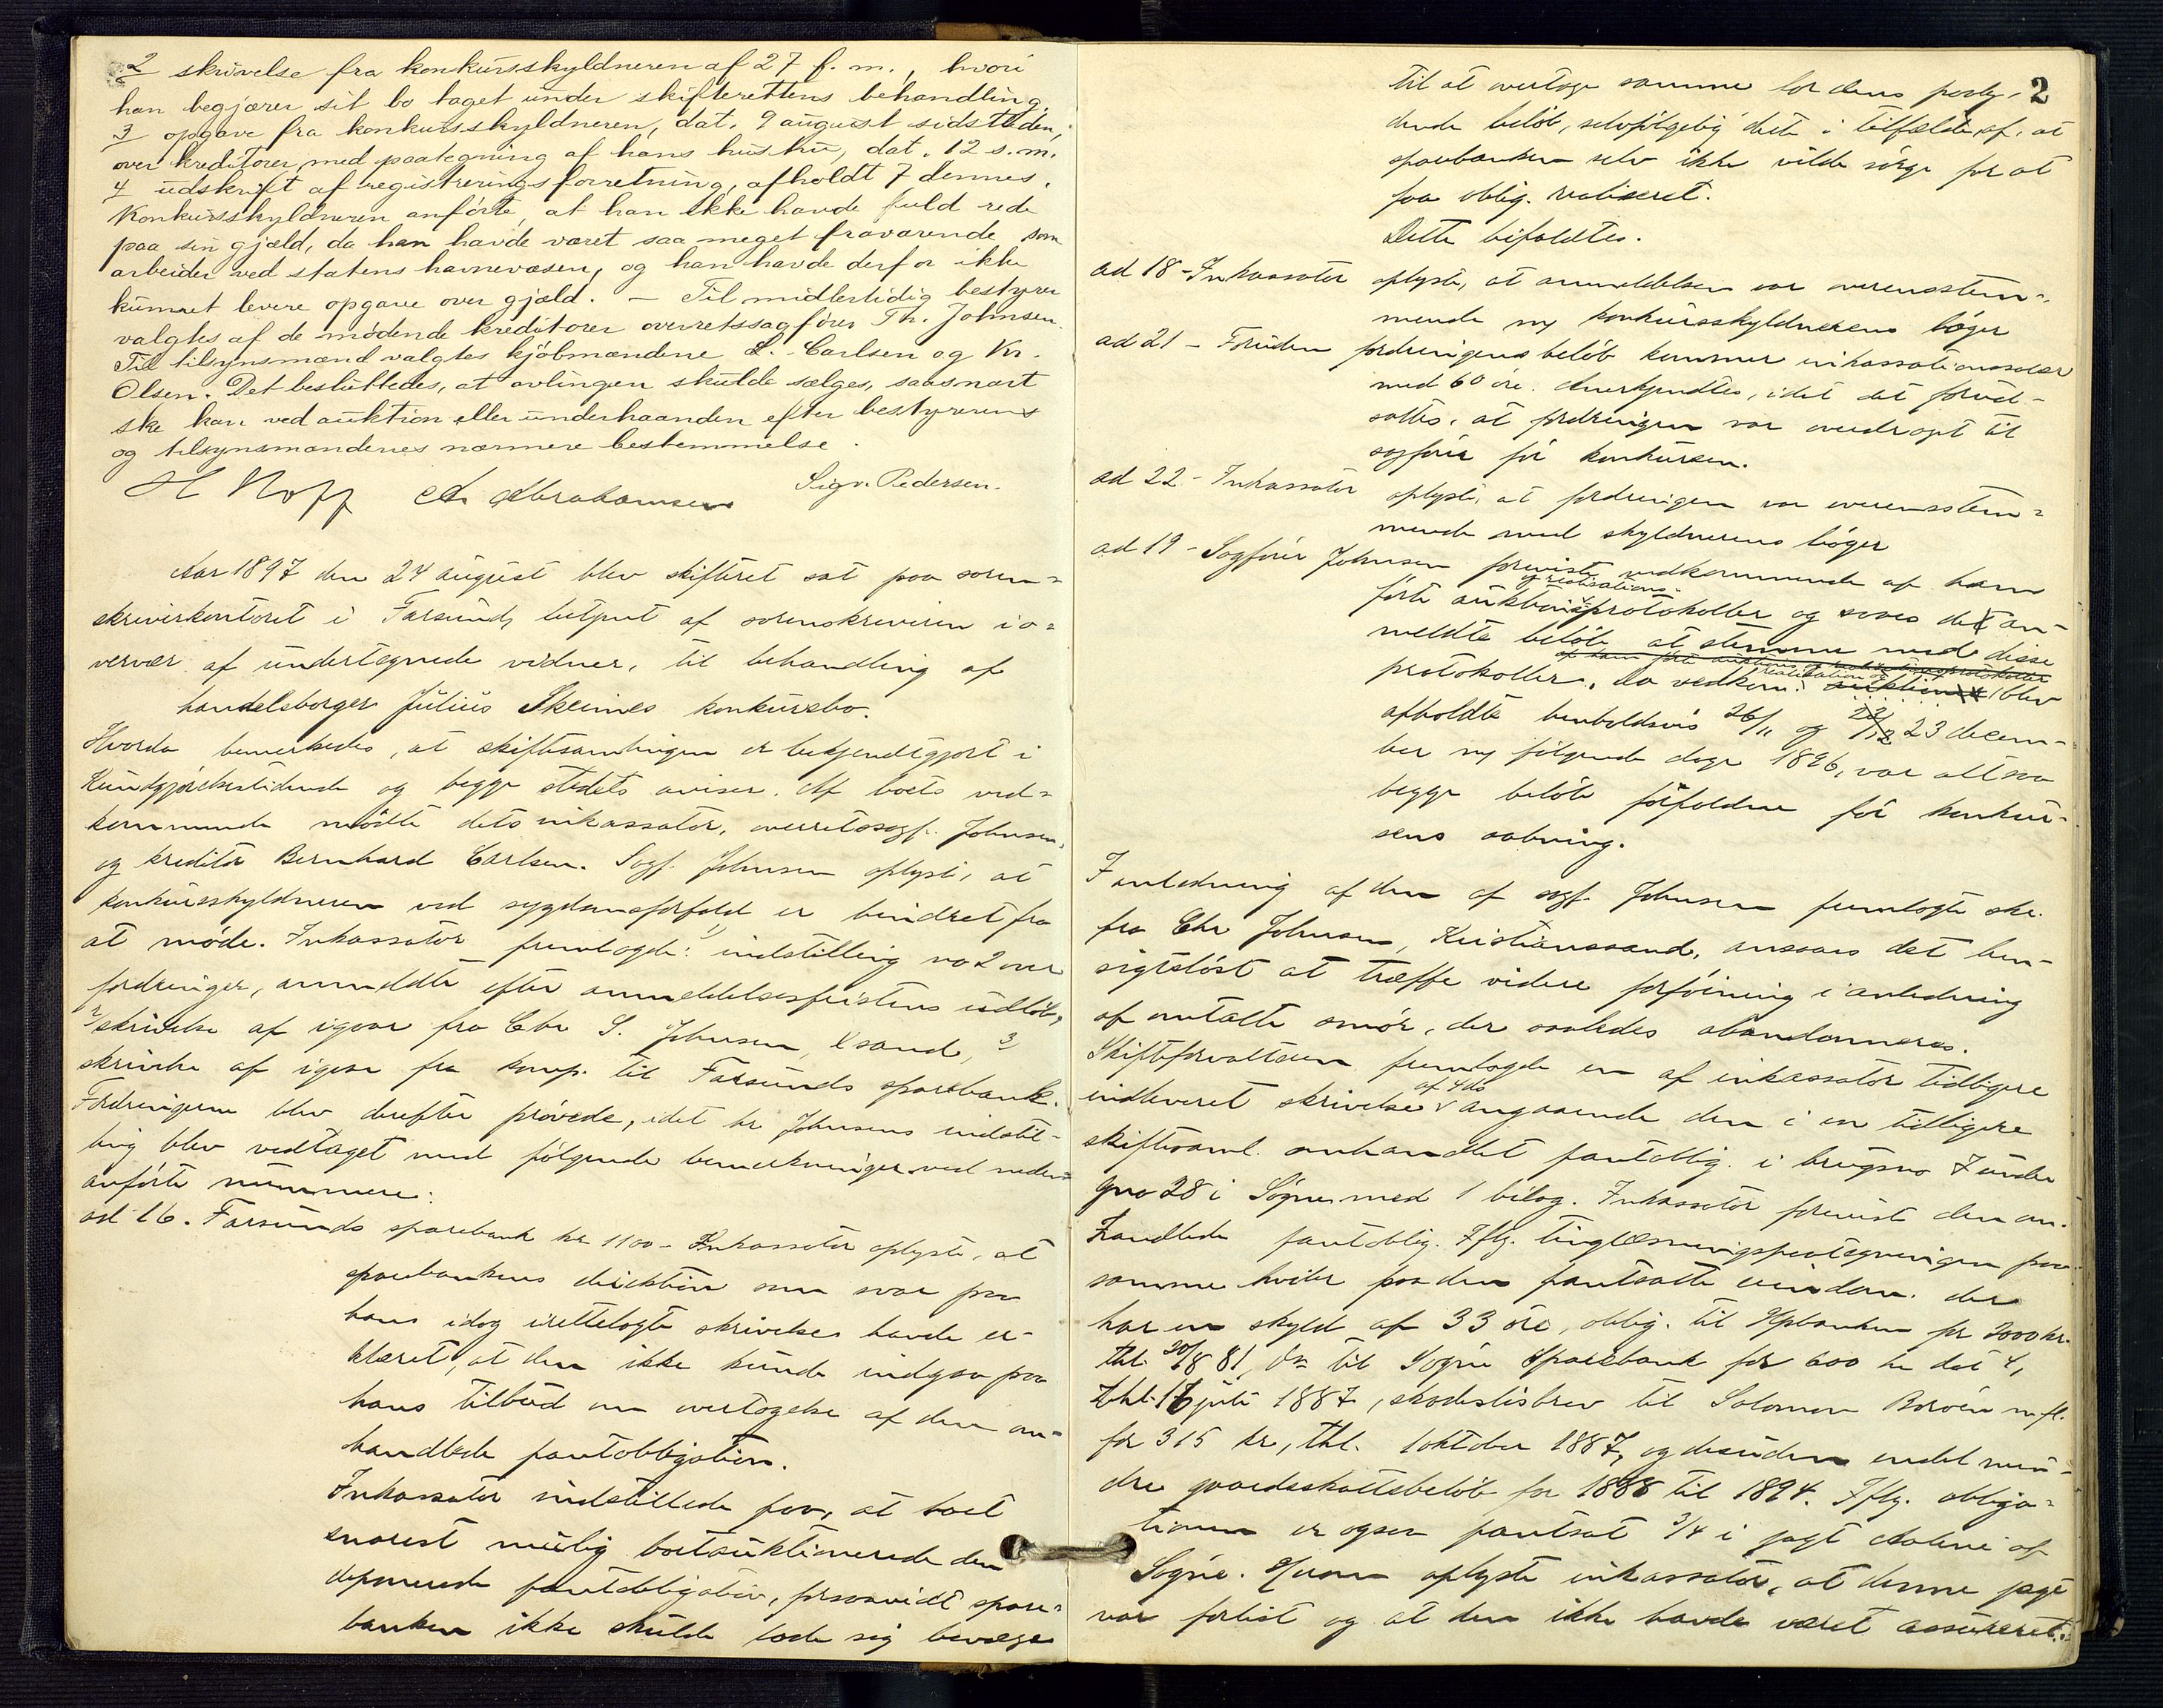 2 skrivelse fra konkursskyldneren af 27 f. m., hvori
han begjærer sit bo taget under skifterettens behandling.
3 opgave fra konkursskyldneren, dat. 9 august sidstleden,
over kreditorer med paategning af hans hustru, dat. 12 s. m.
4 udskrift af registreringsforretning, afholdt 7 dennes.
Konkursskyldneren anførte, at han ikke havde fuld rede
paa sin gjæld, da han havde været saa meget fraværende som
arbeider ved statens havnevæsen, og han havde derfor ikke
kunnet levere opgave over gjæld. – Til midlertidig bestyrer
valgtes af de mødende kreditorer overretssagfører Th. Johnsen.
Til tilsynsmænd valgtes kjøbmændene L. Carlsen og Kr.
Olsen. Det besluttedes, at avlingen skulde sælges, saasnart
ske kan ved auktion eller underhaanden efter bestyrerens
og tilsynsmændenes nærmere bestemmelse.
H Roff A. Abrahamsen Sigv. Pedersen.
Aar 1897 den 24 august blev skifteret sat paa soren=
skriverkontoret i Farsund, betjent af sorenskriveren i o=
vervær af undertegnede vidner, til behandling af
handelsborger Julius Skeimes konkursbo.
Hvorda bemerkedes, at skiftesamlingen er bekjendtgjort i
Kundgjørelsestidende og begge stedets aviser. Af boets ved=
kommende mødte dets inkassator, overretssagf. Johnsen,
og kreditor Bernhard Carlsen. Sagf. Johnsen oplyste, at
konkursskyldneren ved sygdomsforfald er hindret fra
at møde. Inkassator fremlagde: 1) indstilling no 2 over
fordringer, anmeldte efter anmeldelsesfristens udløb,
2/ skrivelse af igaar fra Chr S. Johnsen, Ksand, 3/
skrivelse af igaar fra komp. til Farsunds sparebank.
Fordringerne blev derefter prøvede, idet hr Johnsens indstil-
ling blev vedtaget med følgende bemerkninger ved neden=
anførte nummere:
ad 16. Farsunds sparebank kr 1100 – Inkassator oplyste, at
sparebankens direktion som svar paa
hans idag irettelagte skrivelse havde er-
klæret, at den ikke kunde indgaa paa
hans tilbud om overtagelse af den om=
handlede pantobligation.
Inkassator indstillede paa, at boet
snarest mulig bortauktionerede den
deponerede pantobligation, forsaavidt spare=
banken ikke skulde lade sig bevæge
2
til at overtage samme for dens paaly-
dende beløb, selvfølgelig dette i tilfælde af, at
sparebanken selv ikke vilde sørge for at
faa oblig. realiseret.
Dette bifaldtes.
ad 18 – Inkassator oplyste, at anmeldelsen var overensstem=
mende m/ konkursskyldnerens bøger
ad 21 – Foruden fordringens beløb kommer inkassationssalær
med 60 øre. Anerkjendtes, idet det forud-
sattes, at fordringen var overdraget til
sagfører før konkursen.
ad 22 – Inkassator oplyste, at fordringen var overensstem=
mende med skyldnerens bøger
ad 19 – Sagfører Johnsen foreviste vedkommende af ham
og realisations-
førte auktionsprotokoller og saaes det an-
meldte beløb at stemme med disse
af ham førte auktions og realisationsprotokoller
protokoller. Da vedkom. realisation og auktion blev
afholdte henholdsvis 26/11 og 23/12 23 decem-
ber og følgende dage 1896, var altsaa
begge beløb forfaldne før konkur-
sens aabning.
I anledning af den af sagf. Johnsen fremlagte skr.
fra Chr Johnsen, Kristianssand, ansaaes det hen-
sigtsløst at træffe videre forføining i anledning
af omtalte smør, der saaledes abandonneres.
Skifteforvalteren fremlagde en af inkassator tidligere
af 4 ds
indleveret skrivelse angaaende den i en tidligere
skiftesaml. omhandlet pantoblig. i brugsno 7 under
gno 28 i Søgne med 1 bilag. Inkassator foreviste den om-
handlede pantoblig. Iflg. tinglæsningspaategningen paa
samme hviler paa den pantsatte eiendom. der
har en skyld af 33 øre, oblig. til Hpbanken for 2000 kr.
thl. 20/8 81, do til Søgne Sparebank for 600 kr dat 4,
thl. 16 juli 1887, skadesløsbrev til Salomon Borøen m. fl.
for 315 kr, thl. 1 oktober 1887, og desuden endel min-
dre skatsbeløb for 1888 til 1894. Iflg. obliga=
tionen er ogsaa pantsat 3/4 i jagt af
Søgne. oplyste inkassator, at denne jagt
var forlist og at den ikke havde været assureret.